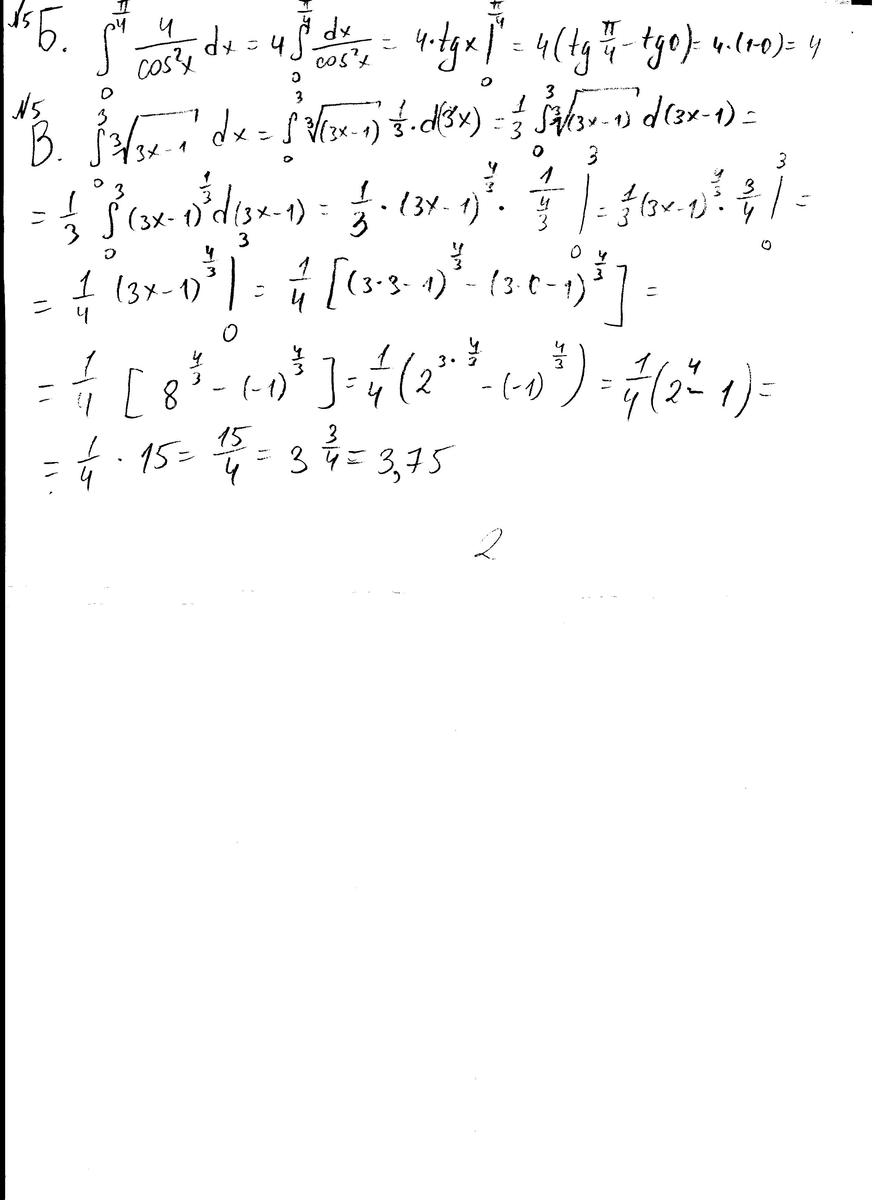 №5 Б. ∫₀^{π/4} 4/cos²x dx = 4 ∫₀^{π/4} dx/cos²x = 4·tgx |₀^{π/4} = 4(tg π/4 - tg0) = 4·(1-0) = 4
№5 В. ∫₀³ ∛(3x-1) dx = ∫₀³ ∛((3x-1)) 1/3·d(3x) = 1/3 ∫₀³ ∛((3x-1)) d(3x-1) =
= 1/3 ∫₀³ (3x-1)^{1/3} d(3x-1) = 1/3 · (3x-1)^{4/3} · 1/(4/3) |₀³ = 1/3 (3x-1)^{4/3} · 3/4 |₀³ =
= 1/4 (3x-1)^{4/3} |₀³ = 1/4 [(3·3-1)^{4/3} - (3·0-1)^{4/3}] =
= 1/4 [8^{4/3} - (-1)^{4/3}] = 1/4 (2^{3·4/3} - (-1)^{4/3}) = 1/4 (2⁴ - 1) =
= 1/4 · 15 = 15/4 = 3 3/4 = 3,75
2